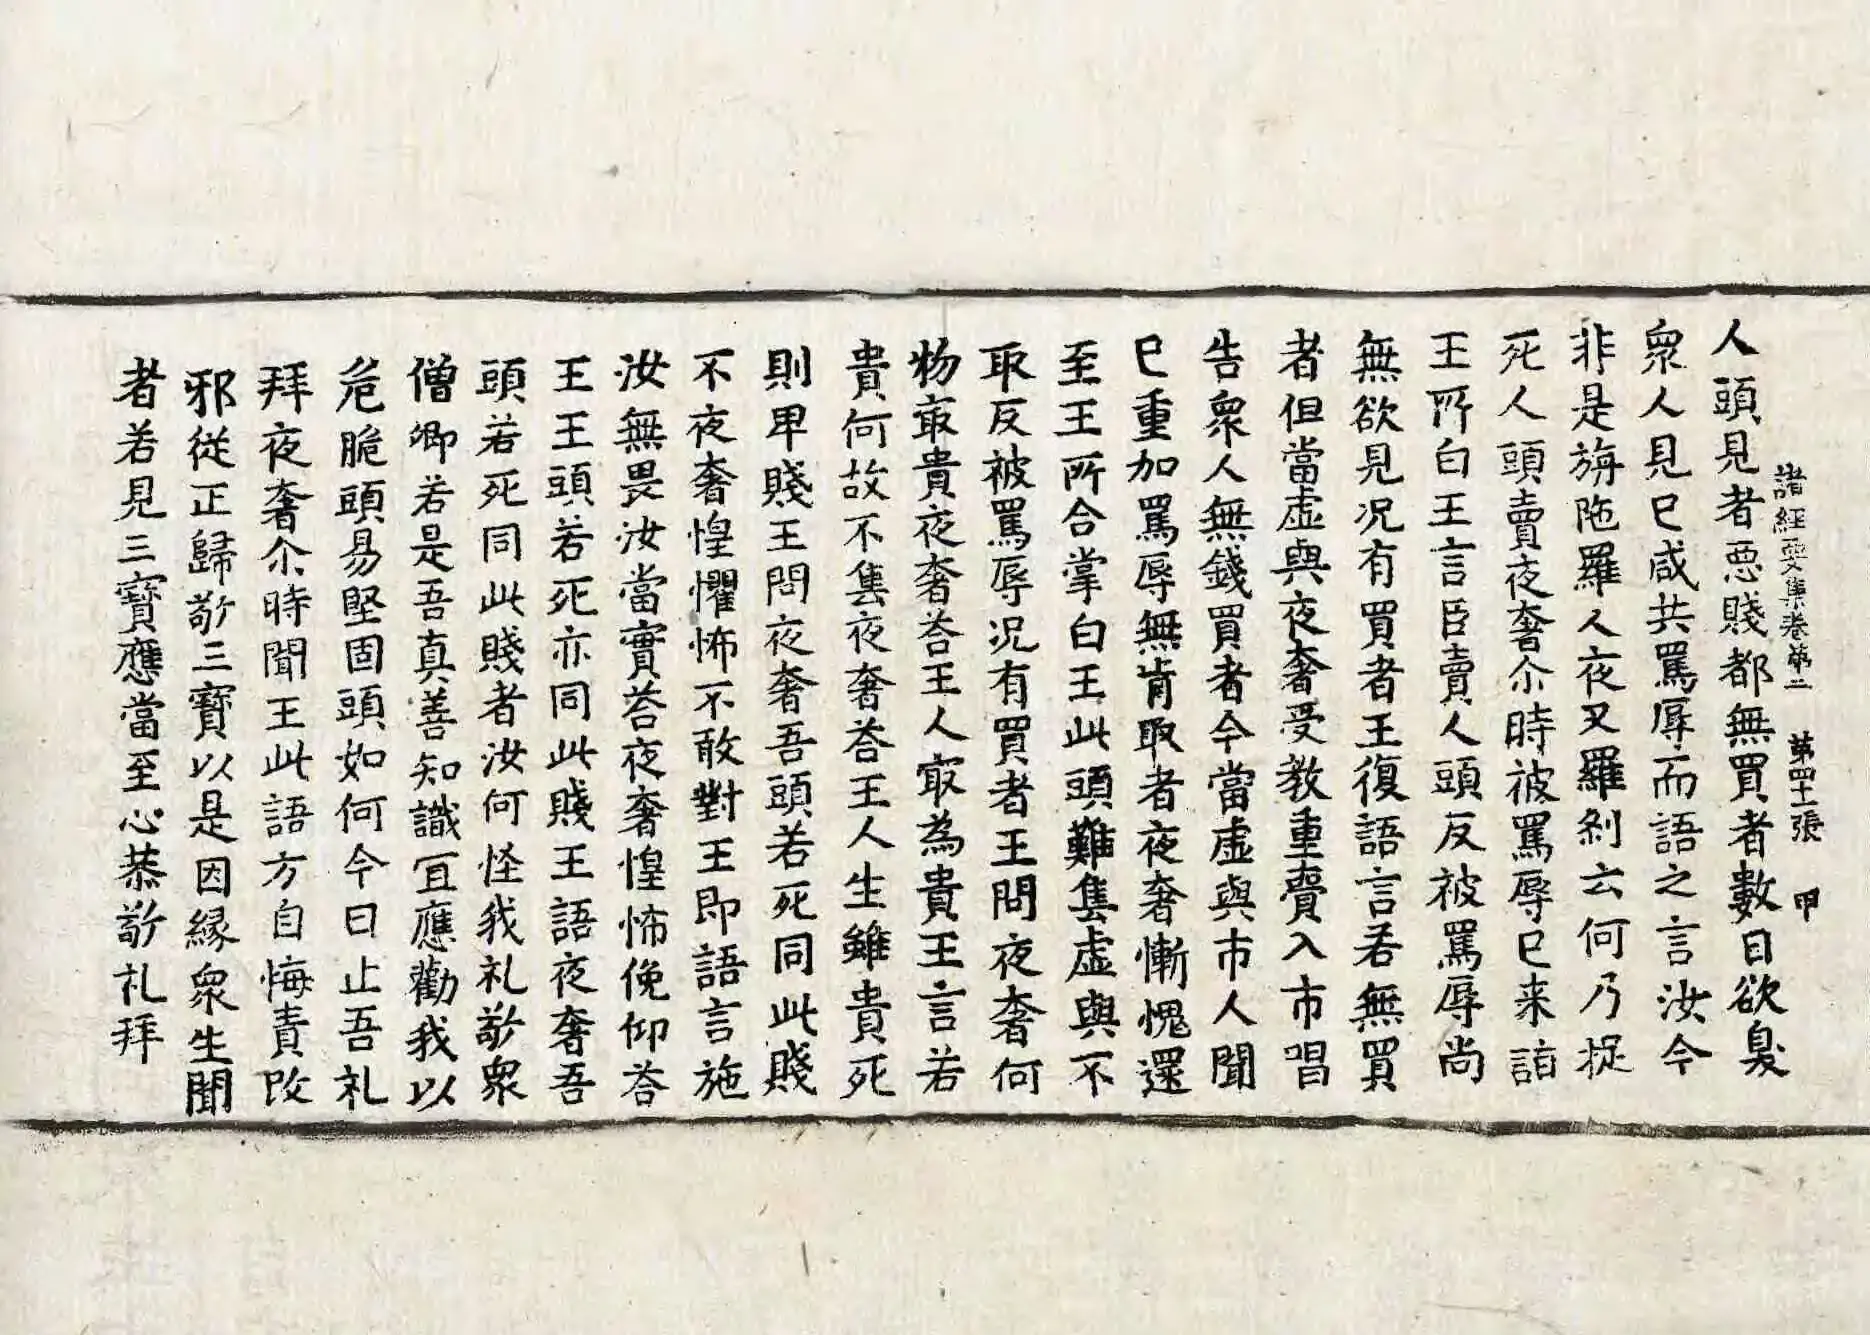 諸經要集卷第二　第四十張　甲
人頭見者惡賤都無買者數日欲臭
衆人見已咸共罵辱而語之言汝今
非是旃陁羅人夜叉羅刹云何乃捉
死人頭賣夜奢尒時被罵辱已来詣
王所白王言臣賣人頭反被罵辱尚
無欲見况有買者王復語言若無買
者但當虛與夜奢受教重賷入市唱
告衆人無錢買者今當虛與市人聞
已重加罵辱無肯取者夜奢慚愧還
至王所合掌白王此頭難售虛與不
取反被罵辱况有買者王問夜奢何
物㝡貴夜奢荅王人㝡為貴王言若
貴何故不售夜奢荅王人生雖貴死
則卑賤王問夜奢吾頭若死同此賤
不夜奢惶懼怖不敢對王即語言施
汝無畏汝當實荅夜奢惶怖俛仰荅
王王頭若死亦同此賤王語夜奢吾
頭若死同此賤者汝何怪我礼敬衆
僧卿若是吾真善知識冝應勸我以
危脆頭易堅固頭如何今日止吾礼
拜夜奢尒時聞王此語方自悔責改
邪從正歸敬三寶以是因緣衆生聞
者若見三寶應當至心恭敬礼拜